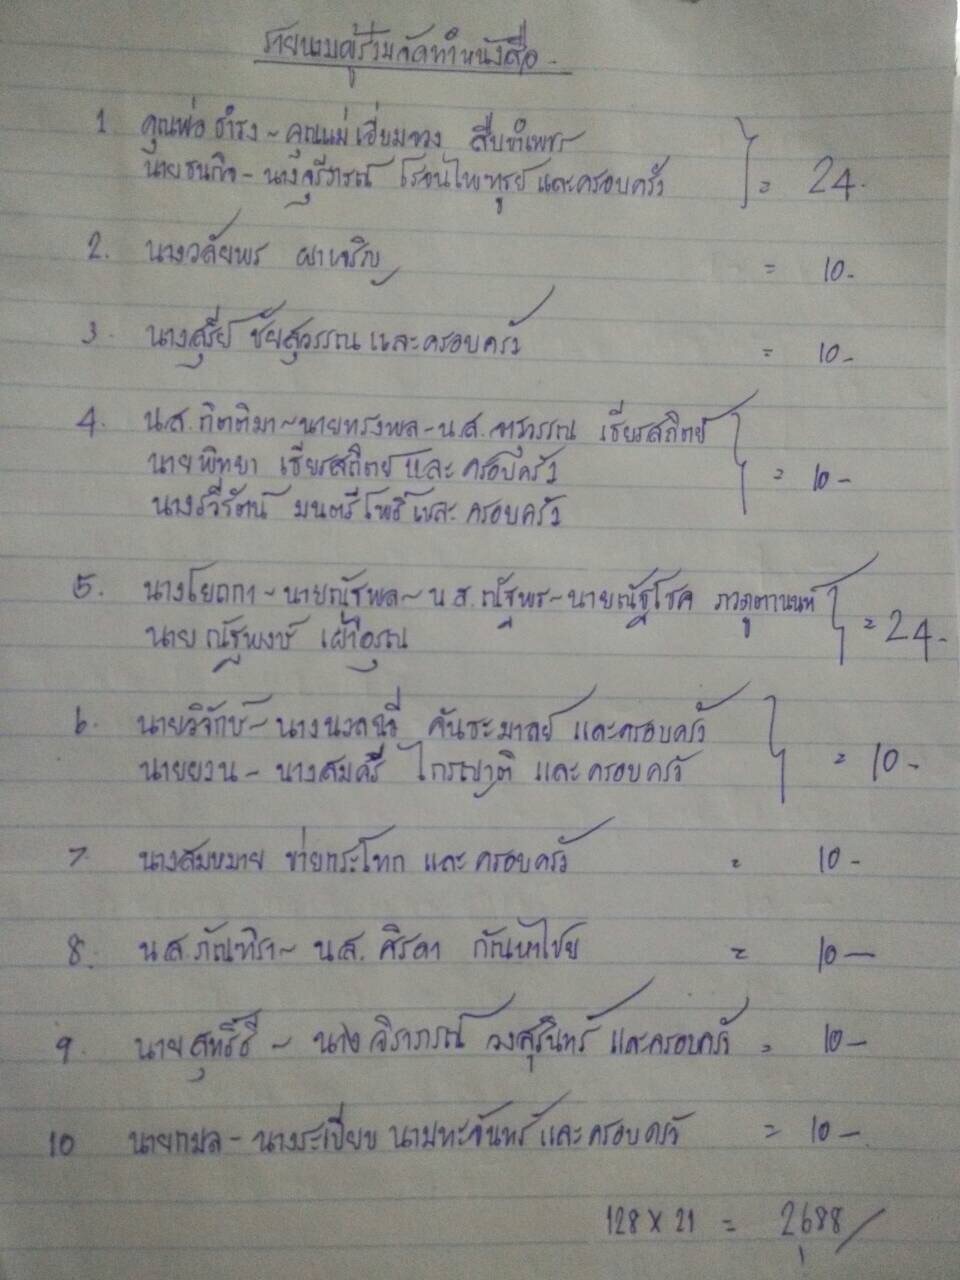 รายนามผู้ร่วมจัดทำหนังสือ -
1. คุณพ่อ ธำรง ~ คุณแม่ เอี่ยมจวง สืบขำเพชร
นายธนกิจ - นางจุรีภรณ์ โรจนไพฑูรย์ และครอบครัว } = 24.
2. นางวลัยพร ผาเจริญ = 10-
3. นางสุรีย์ ชัยสุวรรณ และครอบครัว = 10-
4. น.ส. กิตติมา ~ นายทรงพล - น.ส. จารุวรรณ เธียรสถิตย์
นายพิทยา เธียรสถิตย์ และ ครอบครัว } = 10-
นางรวีรัตน์ มนตรีโพธิ์ และ ครอบครัว
5. นางโยถกา ~ นายณัฐพล ~ น.ส. ณัฐพร ~ นายณัฐโชค ภวภูตานนท์
นาย ณัฐพงษ์ เผ่าอรุณ } = 24-
6. นายวิจักษ์ ~ นางนวลฉวี คันธะมาลย์ และครอบครัว
นายยวน - นางสมศรี ไกรญาติ และครอบครัว } = 10-
7. นางสมหมาย ข่ายกระโทก และ ครอบครัว = 10-
8. น.ส. ภัณฑิรา ~ น.ส. ศิรดา กัณหาไชย = 10-
9. นายสุทธิ์ธี ~ นาง จิราภรณ์ วงสุรินทร์ และครอบครัว = 10-
10 นายกมล - นางระเบียบ นามทะจันทร์ และ ครอบครัว = 10-
128 x 21 = 2688/